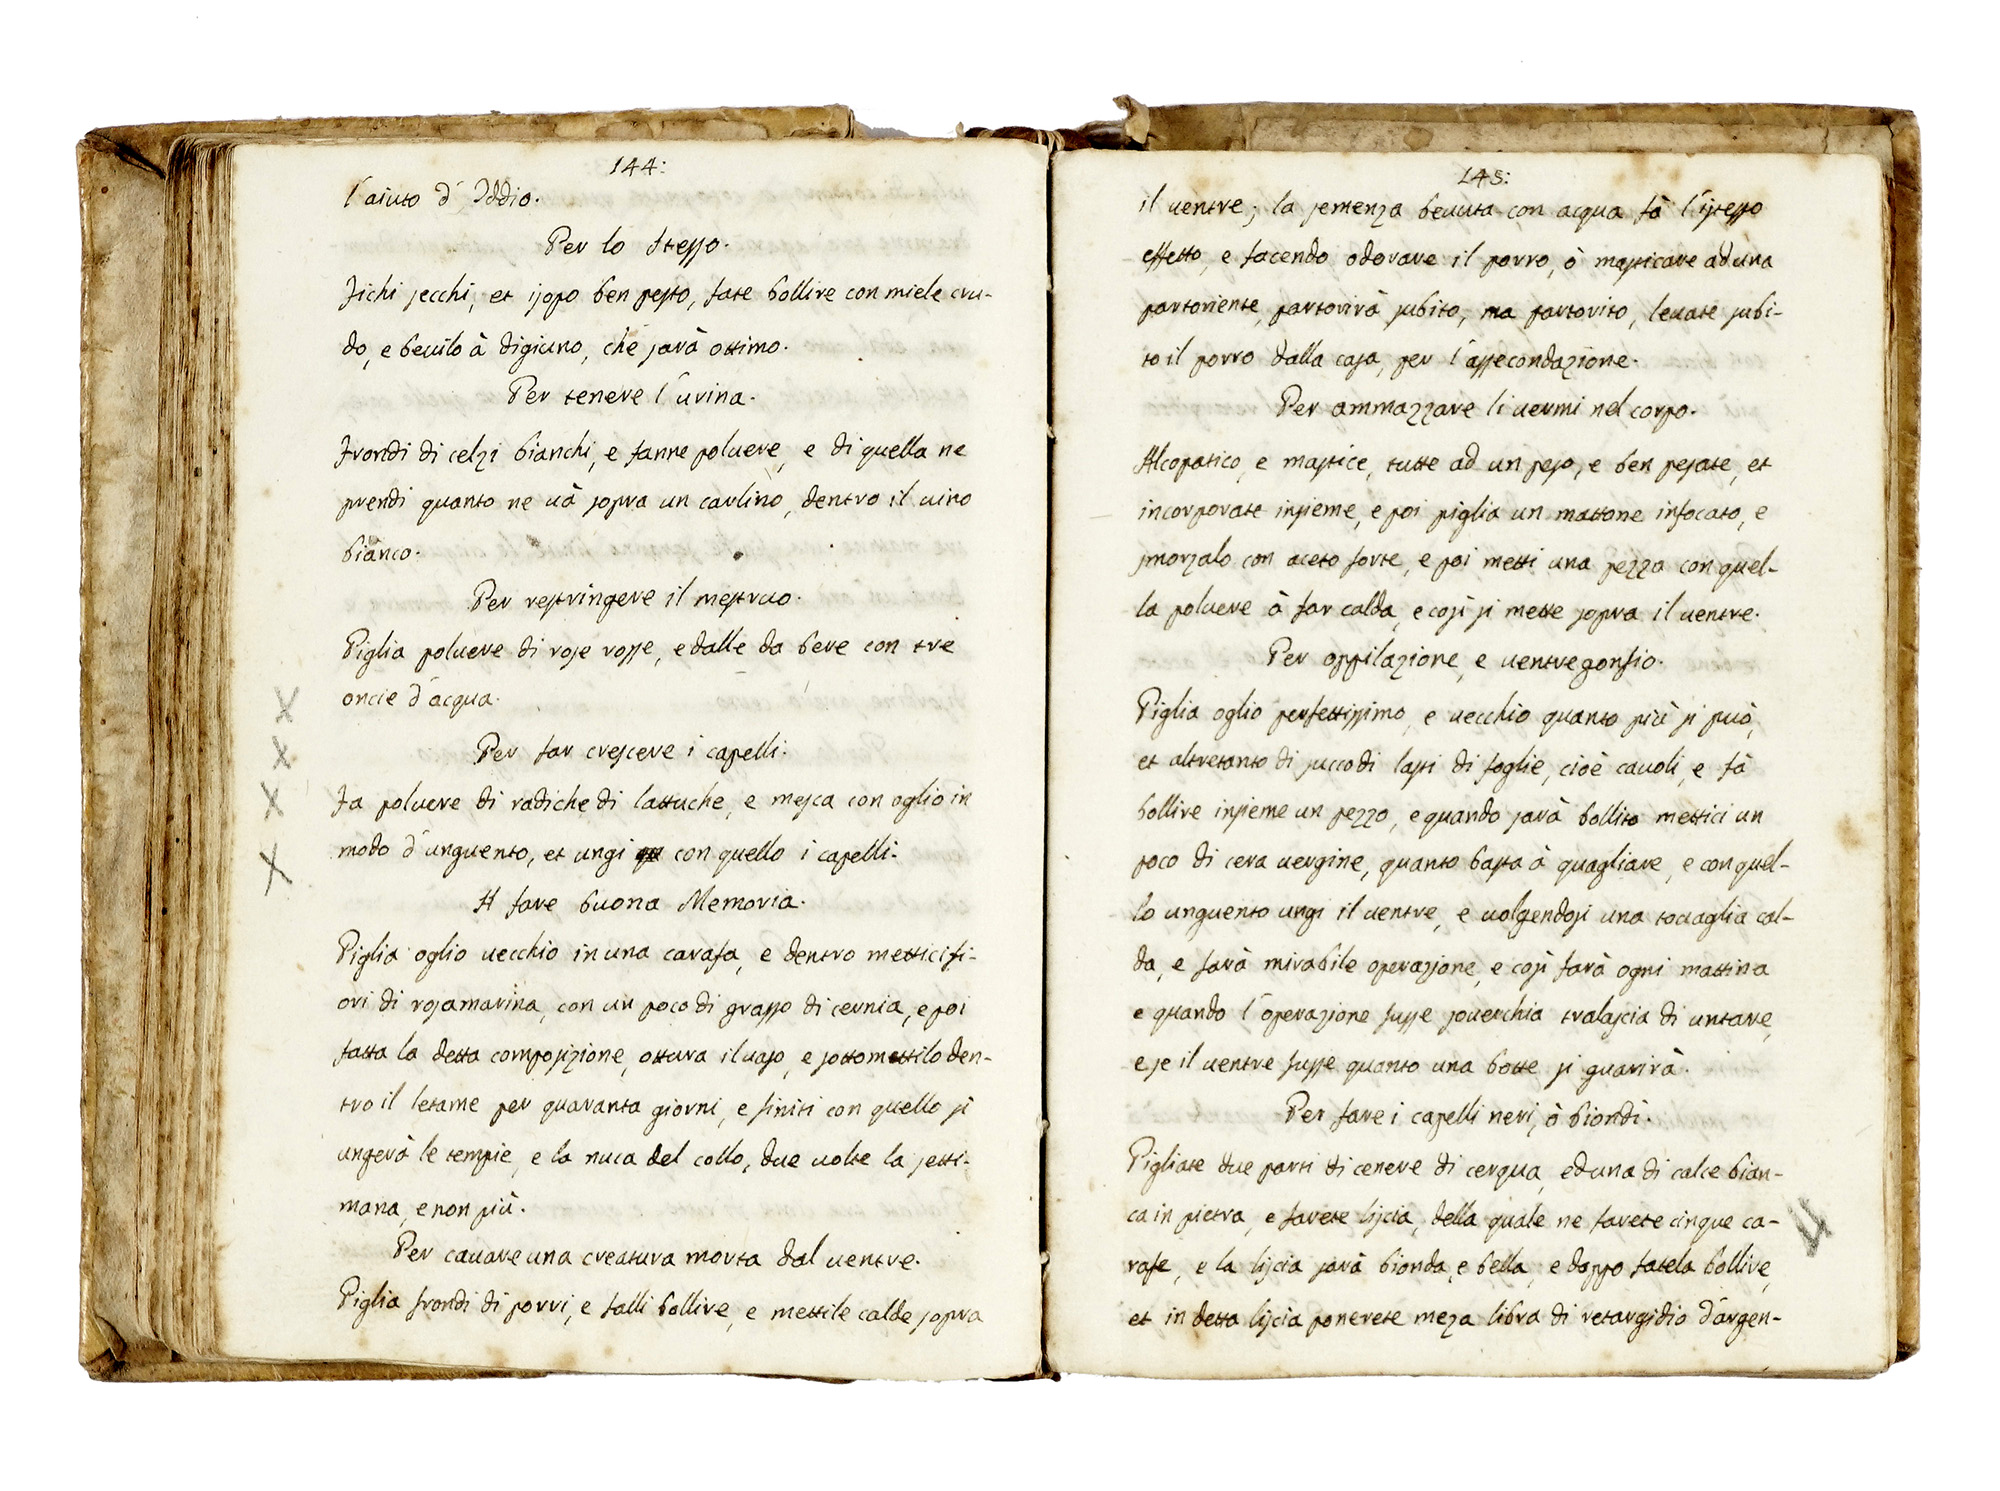 144:
l'aiuto d'Iddio.
Per lo stesso.
Fichi secchi, et isopo ben pesto, fate bollire con miele cru-
do, e bevilo à digiuno, che sarà ottimo.
Per tenere l'urina.
Frondi di celzi bianchi, e fanne poluere, e di quella ne
prendi quanto ne uà sopra un carlino, dentro il uino
bianco.
Per restringere il mestruo.
Piglia poluere di rose rosse, e dalle da bere con tre
oncie d'acqua.
Per far crescere i capelli.
Fa poluere di radiche di lattuche, e mesca con oglio in
modo d'unguento, et ungi con quello i capelli.
A fare buona Memoria.
Piglia oglio uecchio in una carafa, e dentro mettici fi-
ori di rosamarina, con un poco di grasso di cernia, e poi
fatta la detta composizione, ottura il uaso, e sottomettilo den-
tro il letame per quaranta giorni, e finiti con quello si
ungerà le tempie, e la nuca del collo, due uolte la setti-
mana, e non più.
Per cauare una creatura morta dal uentre.
Piglia frondi di porri, e falli bollire, e mettile calde sopra
145:
il uentre; la semenza beuuta con acqua fà l'istesso
effetto, e facendo odorare il porro, ò masticare ad una
partoriente, partorirà subito, ma partorito, leuate subi-
to il porro dalla casa, per l'assecondazione.
Per ammazzare li uermi nel corpo.
Alcopatico, e mastice, tutte ad un peso, e ben pesate, et
incorporate insieme, e poi piglia un mattone infocato, e
smorzalo con aceto forte, e poi metti una pezza con quel-
la poluere à far calda, e così si mette sopra il uentre.
Per oppilazione, e uentre gonfio.
Piglia oglio perfettissimo, e uecchio quanto più si può,
et altretanto di succo di lasti di foglie, cioè cauoli, e fà
bollire insieme un pezzo, e quando sarà bollito mettici un
poco di cera uergine, quanto basta à quagliare, e con quel-
lo unguento ungi il uentre, e uolgendosi una touaglia cal-
da, e farà mirabile operazione, e così farà ogni mattina
e quando l'operazione fusse souerchia tralascia di untare,
e se il uentre fusse quanto una botte si guarirà.
Per fare i capelli neri, ò biondi.
Pigliate due parti di cenere di cerqua, ed una di calce bian-
ca in pietra, e farete liscia, della quale ne farete cinque ca-
rafe, e la liscia sarà bionda, e bella, e doppo fatela bollire,
et in detta liscia ponerete meza libra di retargidio d'argen-